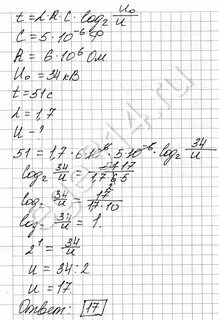 t = α·R·C·log₂ U₀/U
C = 5·10⁻⁶ ф
R = 6·10⁶ Ом
U₀ = 34 кВ
t = 51 с
α = 1,7
U - ?
51 = 1,7·6·10⁶·5·10⁻⁶·log₂ 34/U
log₂ 34/U = 51/1,7·6·5
log₂ 34/U = 17/17·10
log₂ 34/U = 1.
2¹ = 34/U
U = 34:2
U = 17
Ответ: 17